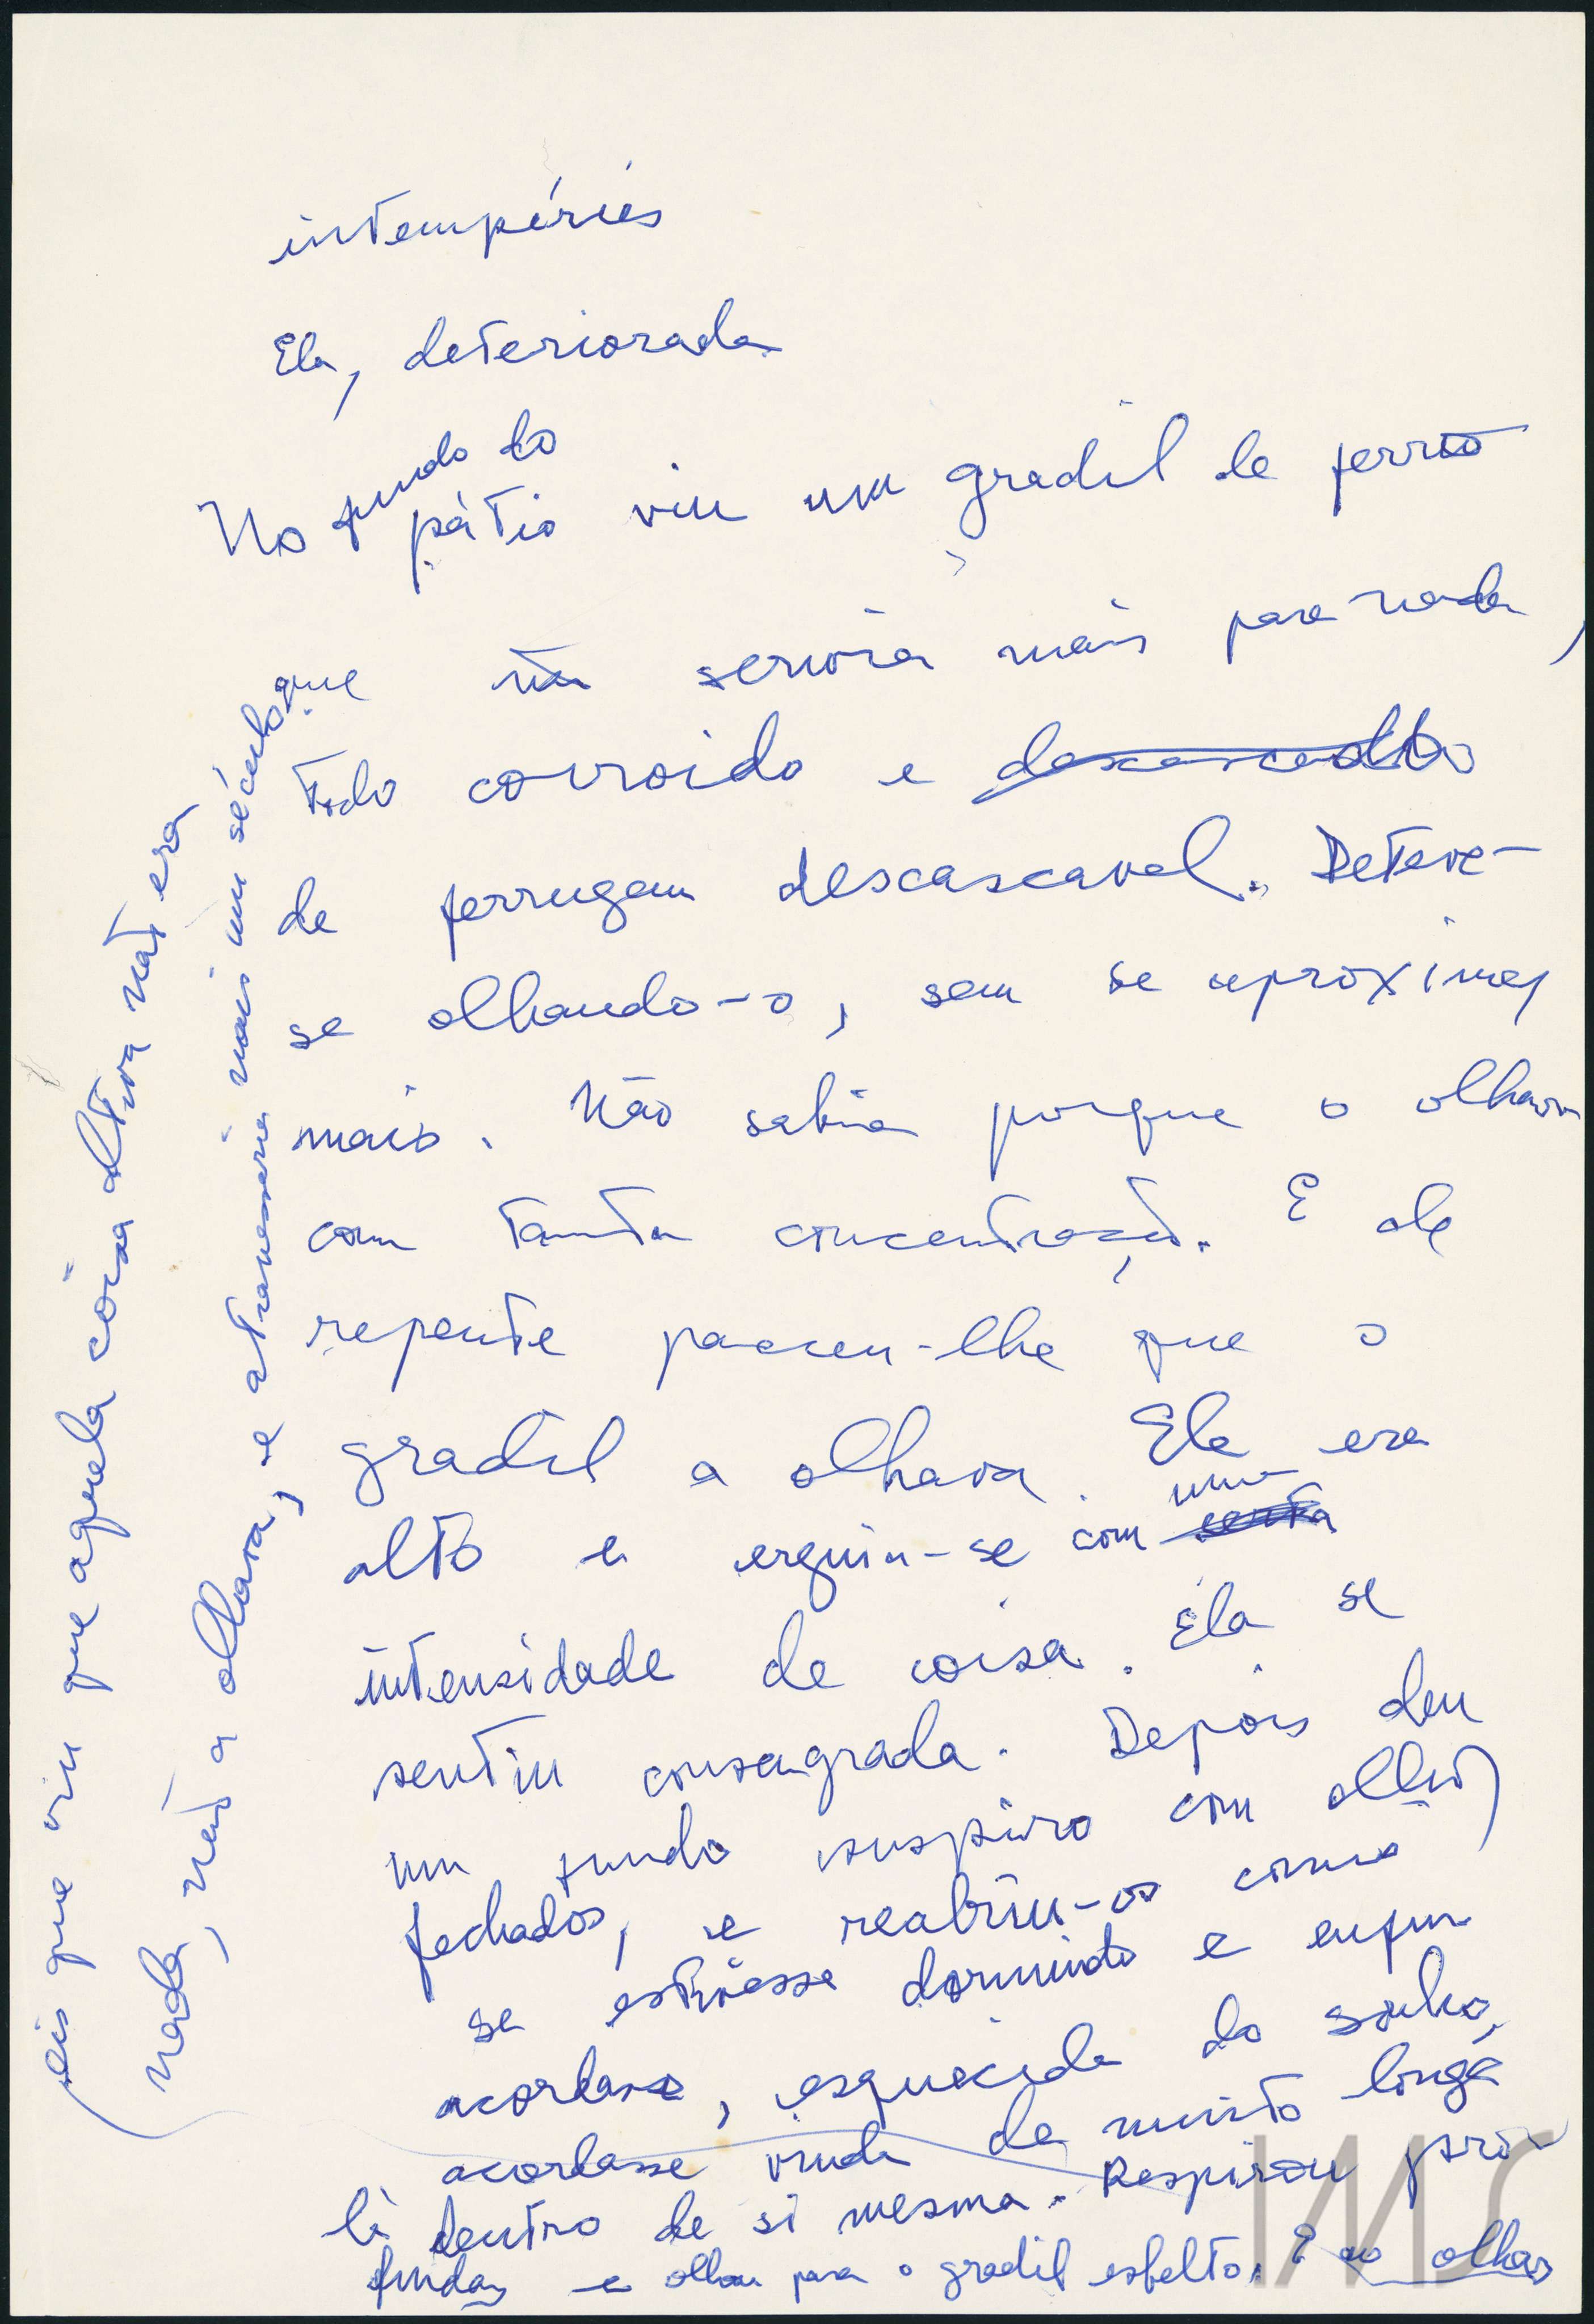 intempéries
Ela, deteriorada
No fundo do
pátio viu um gradil de ferro
que não servia mais para nada,
todo corroido e descascado
de ferrugem descascavel. Deteve-
se olhando-o, sem se aproximar
mais. Não sabia porque o olhava
com tanta concentração. E de
repente pareceu-lhe que o
gradil a olhava. Ele era
alto e erguia-se com uma
intensidade de coisa. Ela se
sentiu consagrada. Depois deu
um fundo suspiro com olhos
fechados, e reabriu-os como
se estivesse dormindo e enfim
acordasse, esquecida do sonho,
acordasse vinda de muito longe
lá dentro de si mesma. Respirou pro-
funda e olhou para o gradil esbelto. E ao olhar
eis que viu que aquela coisa altiva não era
nada, não a olhava, e atravessaria mais um século
IMS